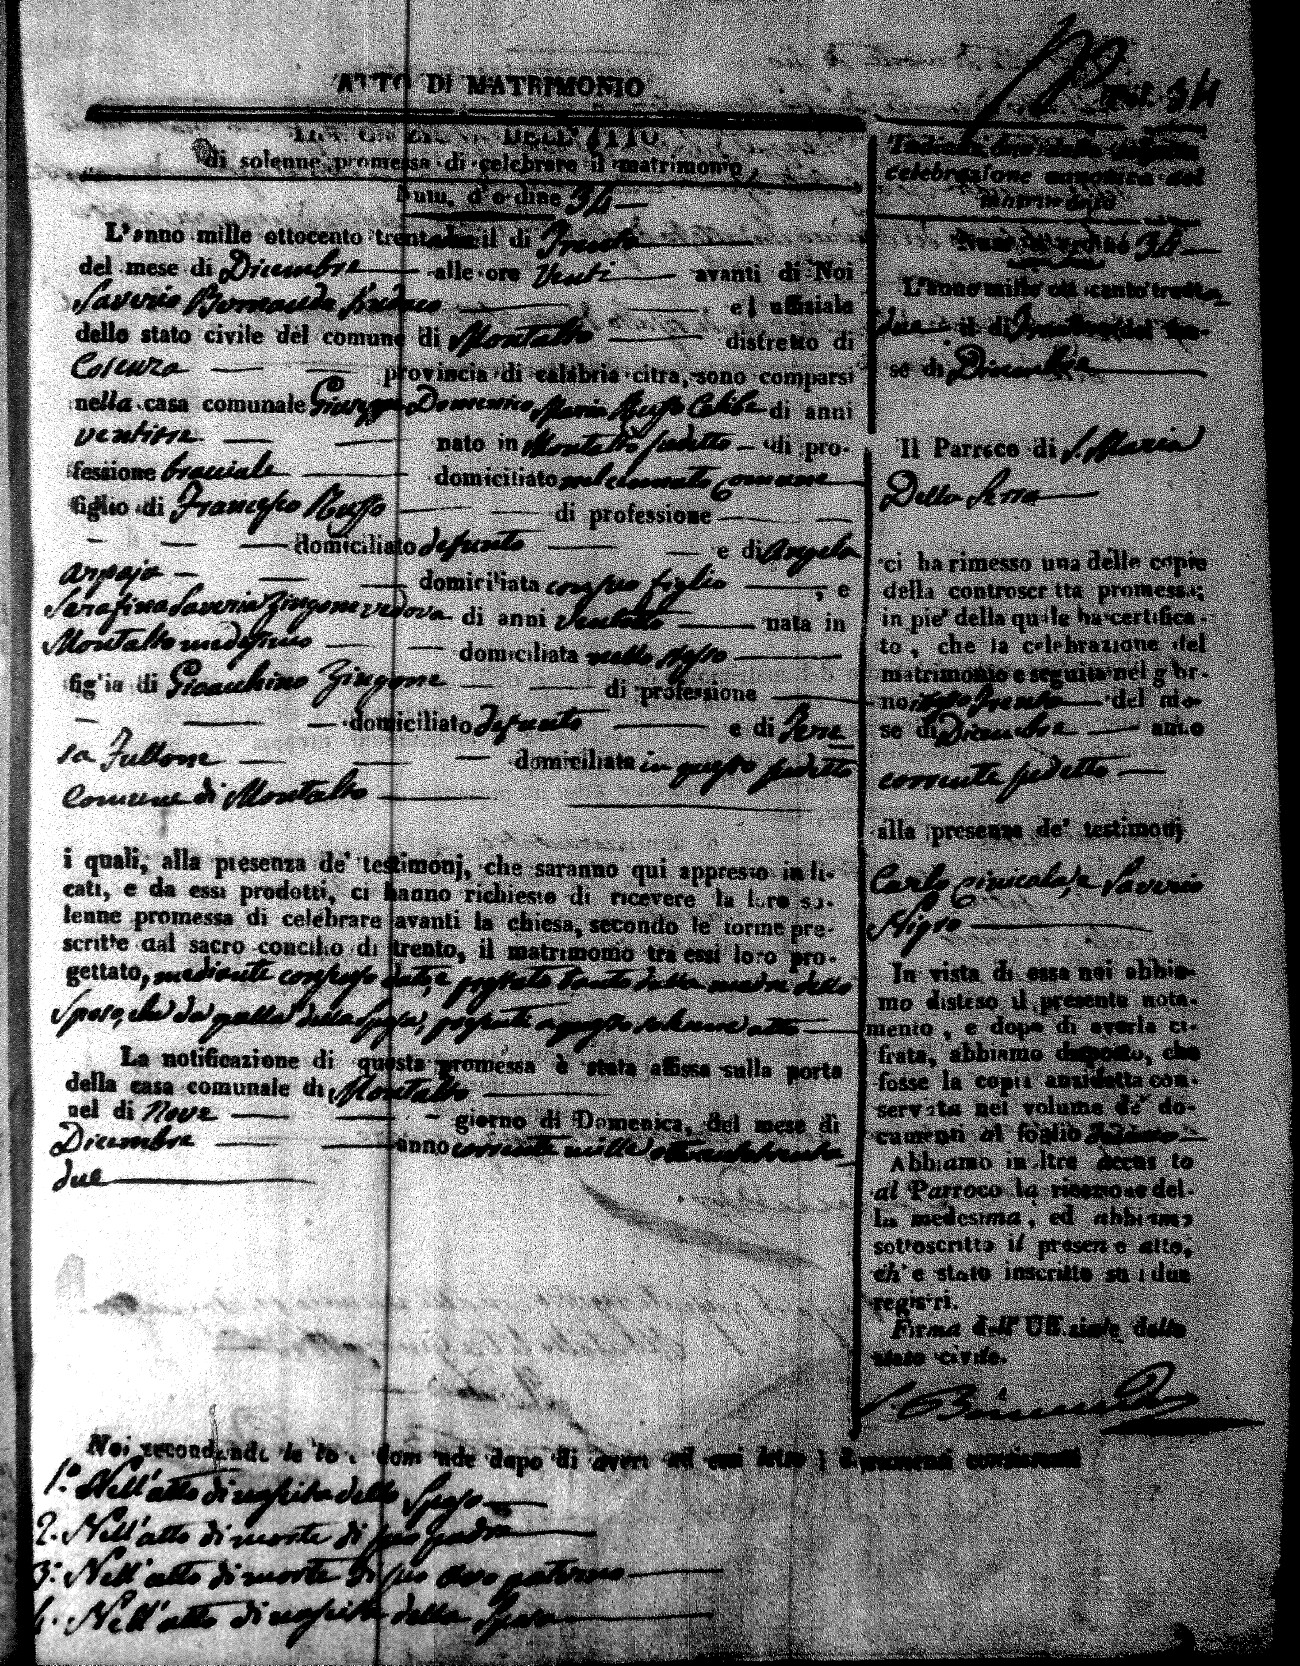 ATTO DI MATRIMONIO
34
DELL'ATTO.
di solenne promessa di celebrare il matrimonio,
Num. d'ordine 34
L'anno mille ottocento trentadue il dì Trenta
del mese di Dicembre alle ore Venti avanti di Noi
Saverio ed uffiziale
dello stato civile del comune di Montalto distretto di
Cosenza provincia di calabria citra, sono comparsi
nella casa comunale Giuseppe Domenico Maria Russo Celibe di anni
ventitre nato in Montalto predetto di pro-
fessione bracciale domiciliato nel cennato Comune
figlio di Francesco Russo di professione
domiciliato defunto e di Angela
Arpaja domiciliata con suo figlio, e
Serafina Saveria Zingone vedova di anni ventotto nata in
Montalto medesimo domiciliata nello stesso
figlia di Gioacchino Zingone di professione
domiciliato defunto e di Tere
sa Fullone domiciliata in questo predetto
Comune di Montalto
i quali, alla presenza de' testimonj, che saranno qui appresso indi-
cati, e da essi prodotti, ci hanno richiesto di ricevere la loro so-
lenne promessa di celebrare avanti la chiesa, secondo le forme pre-
scritte dal sacro concilio di trento, il matrimonio tra essi loro pro-
gettato, mediante consenso dato, e prestato tanto dalla madre dello
Sposo, che da quella della Sposa, presenti a questo solenne atto
La notificazione di questa promessa è stata affissa sulla porta
della casa comunale di Montalto
nel dì Nove giorno di Domenica, del mese di
Dicembre anno corrente mille ottocentotrenta
due
Noi secondando le loro domande dopo di averi ad essi letto i documenti consistenti
1.° Nell'atto di nascita dello Sposo
2. Nell'atto di morte di suo padre
3. Nell'atto di morte di suo avo paterno
4. Nell'atto di nascita della Sposa
celebrazione canonica del
matrimonio
Num. d'ordine 34
L'anno mille ottocento trenta
due il dì Trenta del me-
se di Dicembre
Il Parroco di S. Maria
Della Serra
ci ha rimesso una delle copie
della controscritta promessa;
in pie' della quale ha certifica-
to, che la celebrazione del
matrimonio e seguita nel gior-
no stesso Trenta del me-
se di Dicembre anno
corrente predetto
alla presenza de' testimonj
Carlo Pinicola, e Saverio
Nigro
In vista di essa noi abbia-
mo disteso il presente nota-
mento, e dopo di averla ci-
frata, abbiamo disposto, che
fosse la copia anzidetta con-
servata nel volume de' do-
cumenti al foglio
Abbiamo inoltre accusato
al Parroco la ricezione del-
la medesima, ed abbiamo
sottoscritto il presente atto,
ch'e stato inscritto su i due
registri.
Firma dell'Uffiziale dello
stato civile.